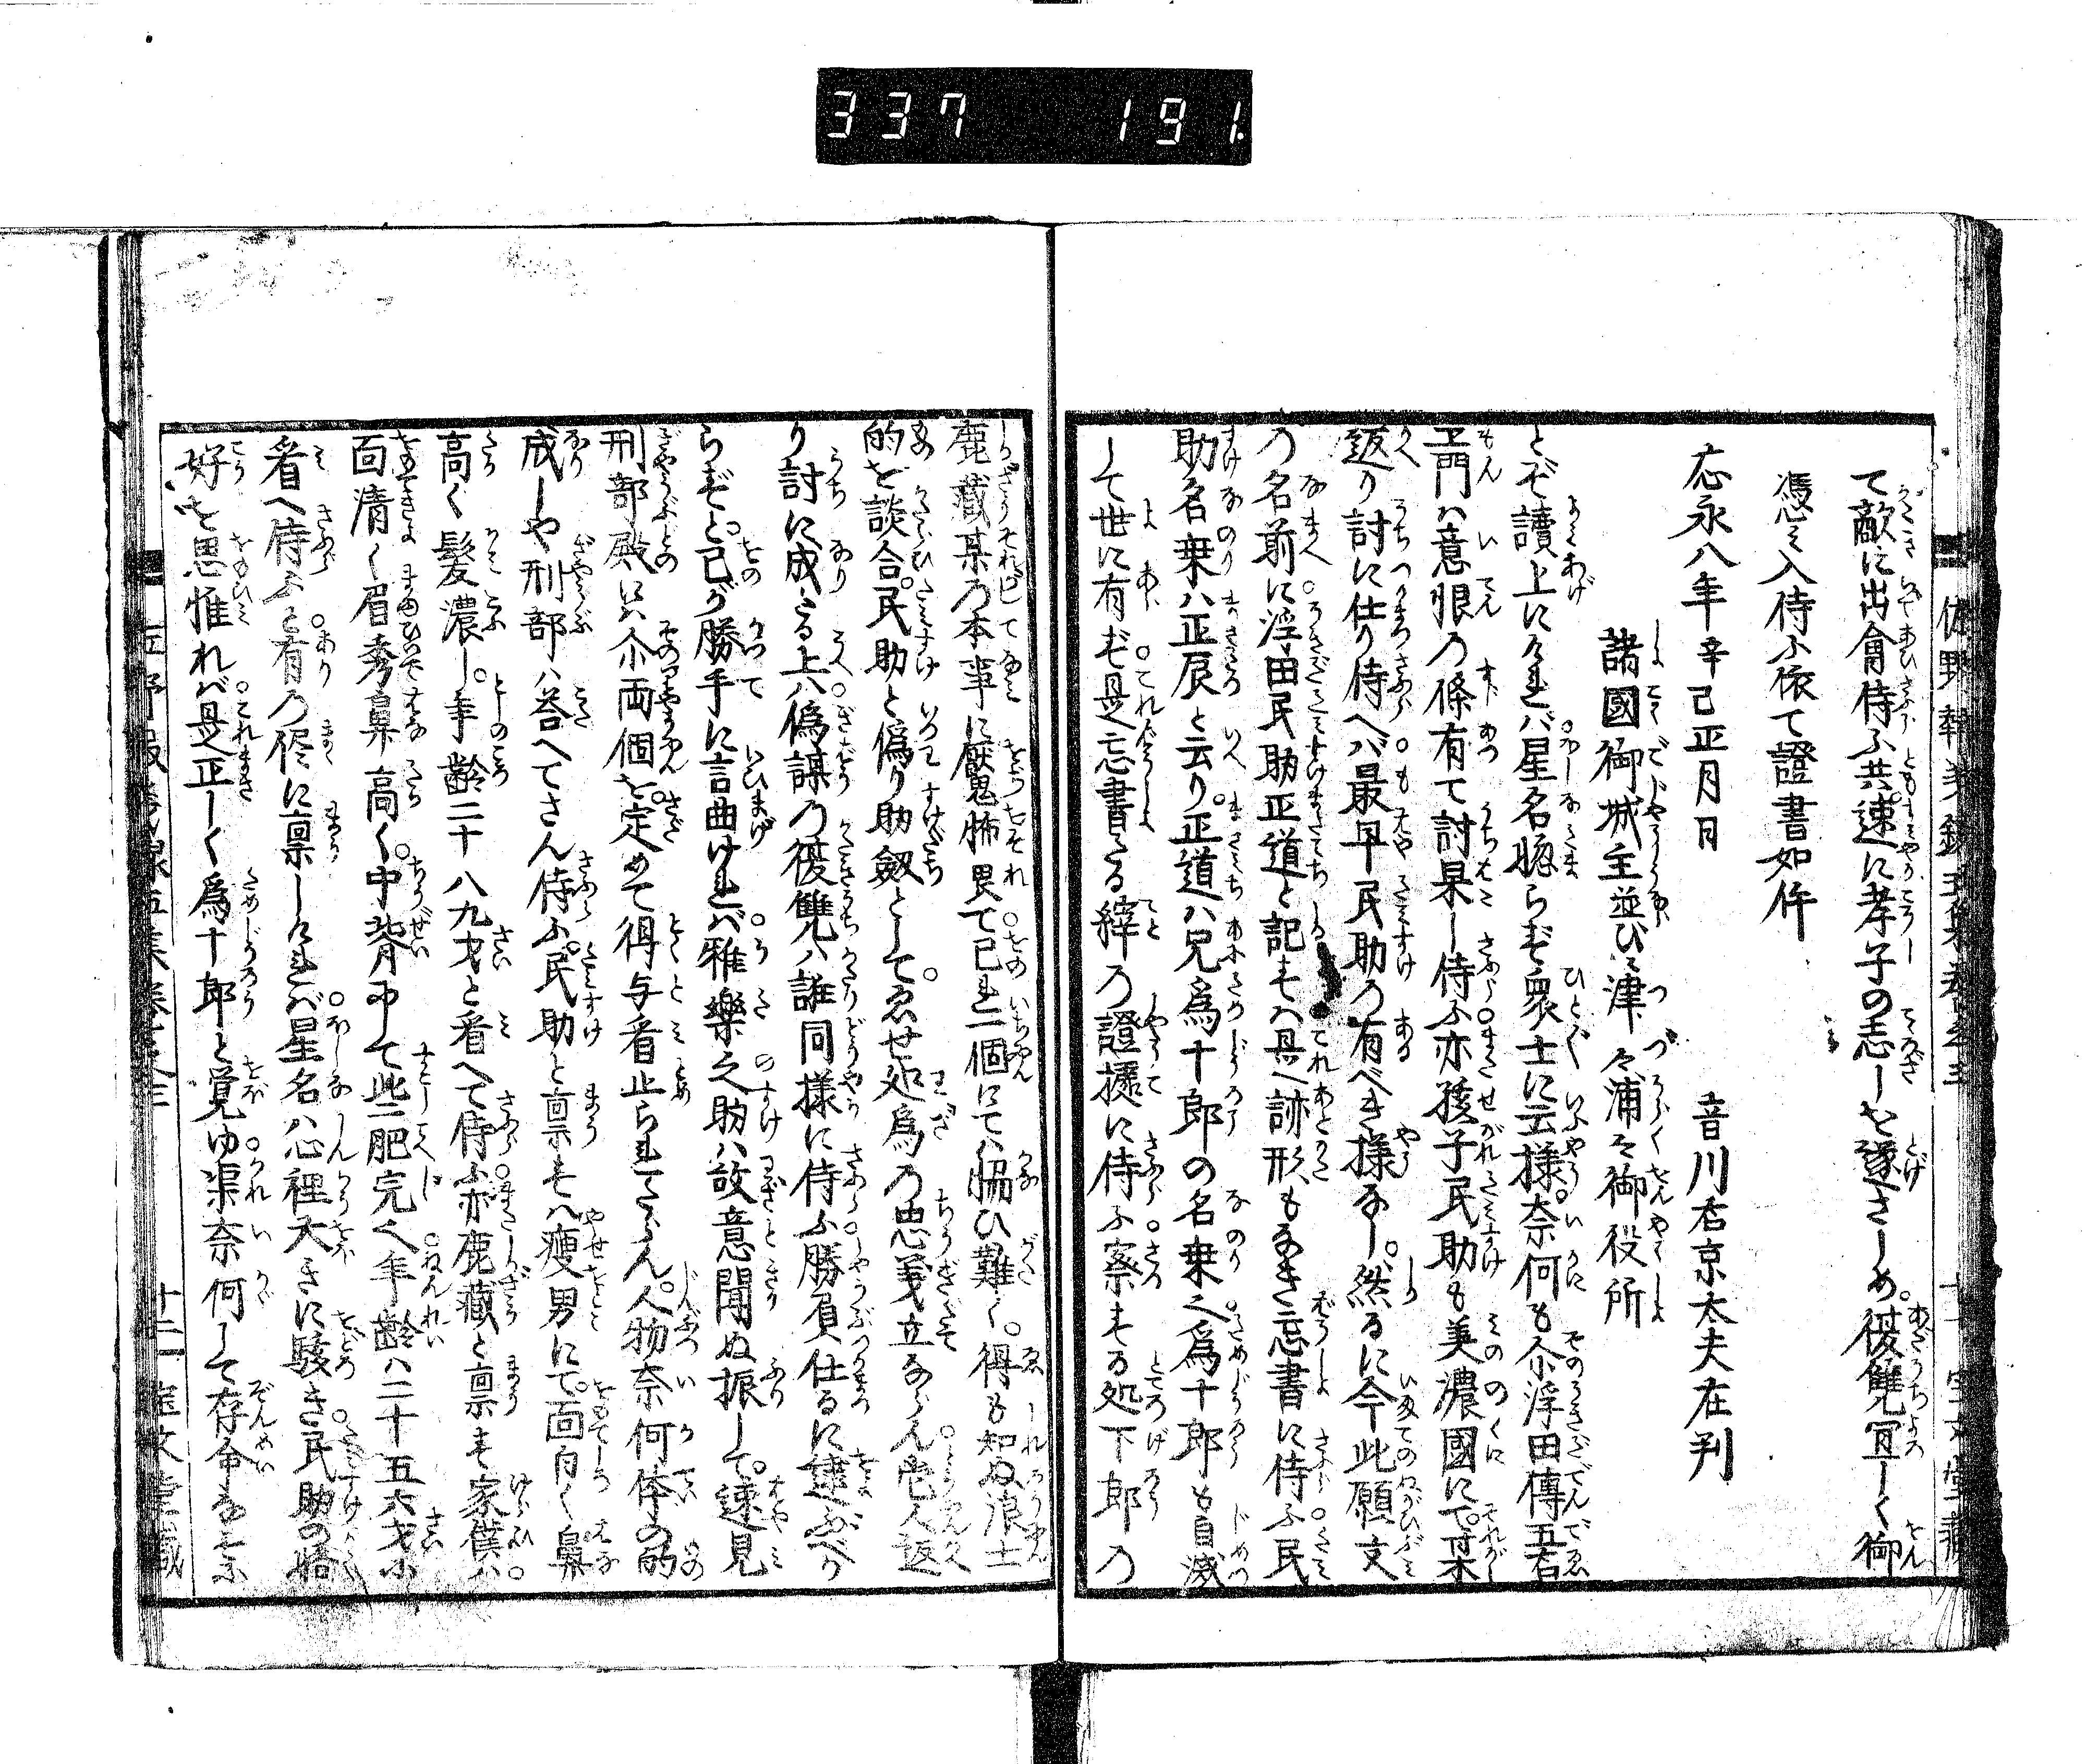 337 191.
て敵に出會侍ふ共速に孝子の志しを遂さしめ。復讐宜しく御
憑ミ入侍ふ依て證書如件
応永八年辛己正月日 音川右京太夫在判
諸國御城主並ひニ津々浦々御役所
とぞ讀上にけれバ星名聴らぞ衆士に云様。奈何も尒浮田傳五右
衛門ハ意恨の條有て討果し侍ふ亦孩子民助も美濃國にて。某
返り討に仕り侍へバ最早民助の有べき様なし。然るに今此願文
の名前に浮田民助正道と記せハ是跡形もなき忘書に侍ふ民
助名乗ハ正辰と云り。正道ハ兄為十郎の名乗之為十郎も自滅
して世に有ず是忘書たる縡の證據に侍ふ察する処下郎の
鹿藏某の本事に魘怖畏て己れ一個にてハ協ひ難く。得も知ぬ浪士
的を談合。民助と偽り助劔として。為せ処為の忠義立ならん壱人返
り討に成たる上ハ偽謀の復讐ハ誰同様に侍ふ勝負仕るに逮ぶべか
らずと。己が勝手に言曲けれバ雅樂之助ハ故意聞ぬ振して。速見
刑部殿にハ尒両個を。定めて得与看止られてらん。人物奈何体の的
成しや刑部ハ答へてさん侍ふ。民助と禀せハ痩男にて。面白く鼻
高く髪濃し。年齢二十八九才と看へて侍ふ亦鹿藏と禀す家僕ハ
面清く眉秀鼻高く。中背币して此二肥完く年齢ハ二十五六才に
看へ侍ふと有の侭に禀しけれバ星名ハ心裡大きに駭き民助の恪
好を思惟れバ是正しく為十郎と覚ゆ渠奈何して存命なせふ
十二 宝文堂藏